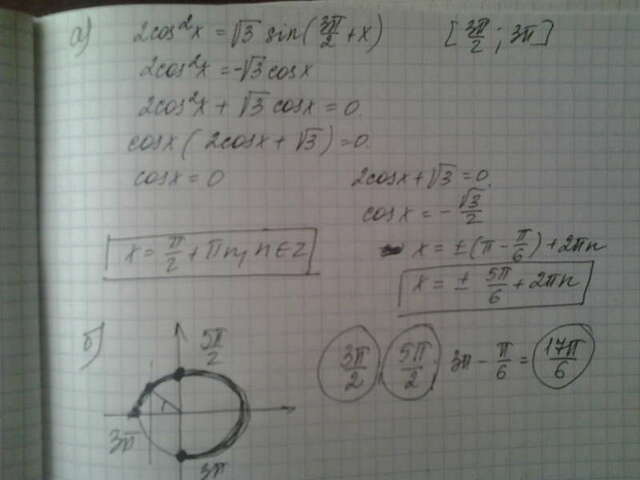 а) 2cos²x = √3 sin(3π/2 + x) [3π/2; 3π]
2cos²x = -√3 cosx
2cos²x + √3 cosx = 0
cosx(2cosx + √3) = 0
cosx = 0 2cosx + √3 = 0
cosx = -√3/2
x = π/2 + πn, n∈Z x = ±(π - π/6) + 2πn
x = ± 5π/6 + 2πn
б) 5π/2 3π/2, 5π/2 3π - π/6 = 17π/6
3π
3π